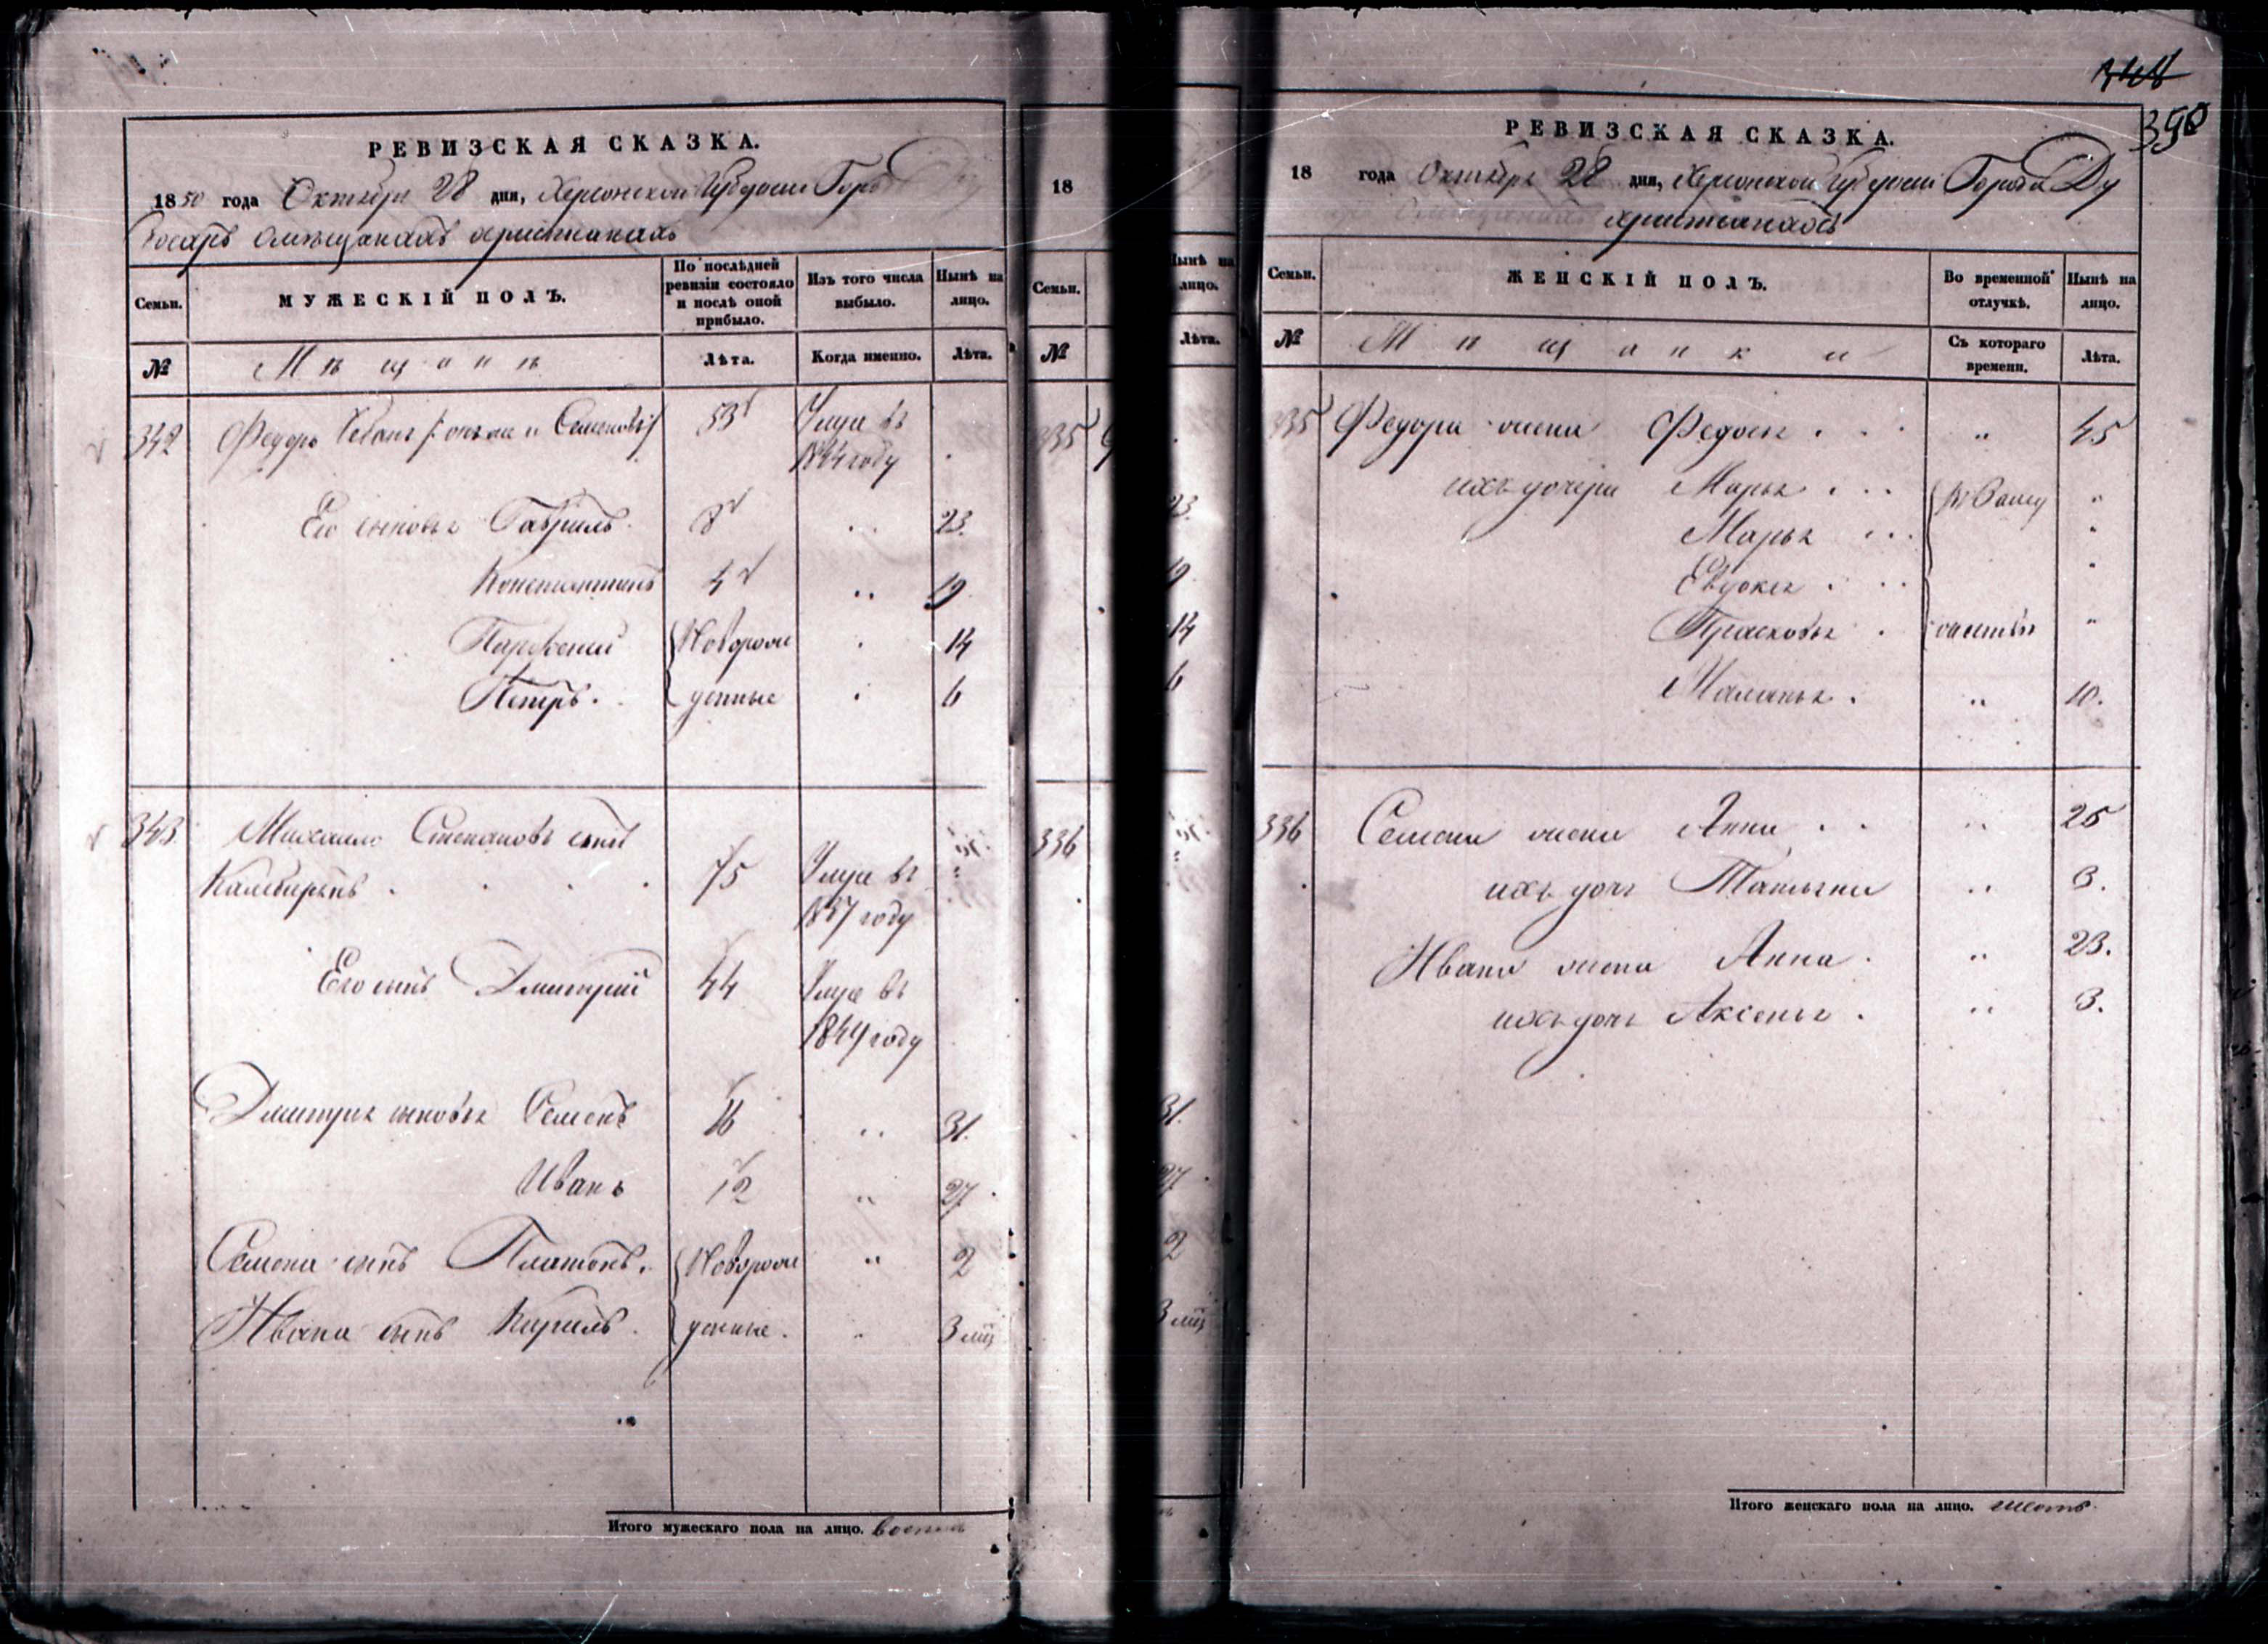 РЕВИЗСКАЯ СКАЗКА.
1850 года Октября 28 дня, Херсонской Губернии Горо
босаръ омѣщанахъ христианахъ
Семьи. МУЖЕСКІЙ ПОЛЪ. По послѣдней ревизіи состояло и послѣ оной прибыло. Изъ того числа выбыло. Нынѣ на лицо.
№ Мѣщанѣ Лѣта. Когда именно. Лѣта.
342 Федоръ онъ же и Семеновъ 53 Умре въ
1844 году
Его сыновья Гавріилъ 8 " 23.
Константинъ 4 " 19
Парфеній Новорож 14
Петръ. денные 6
343 Михайло Степановъ сынъ
75 Умре въ
1837 году
Его сынъ Дмитрій 44 Умре въ
1844 году
Дмитрія сыновья Семенъ 16 " 31.
Иванъ 12 " 27.
Семена сынъ Платонъ. Новорож " 2
Ивана сынъ Кирилъ. денные. " 3 мц
Итого мужескаго пола на лицо. восемь
18
Семьи.
№
335
336
Нынѣ на лицо.
Лѣта.
23.
19.
14
6
31.
27.
2
3 мц
350
РЕВИЗСКАЯ СКАЗКА.
18 года Октября 28 дня, Херсонской Губерніи Города Ду
христьанахъ
Семьи. ЖЕНСКІЙ ПОЛЪ. Во временной отлучкѣ. Нынѣ на лицо.
№ Мѣщанки Съ котораго времени. Лѣта.
335 Федора жена Федосья " 45
ихъ дочери Марья . . . въ Заму "
Марья . . . "
Евдокия . . . "
Прасковья . жествѣ "
Маланья . " 10.
336 Семена жена Анна . . " 25
ихъ дочь Татьяна " 3.
Ивана жена Анна . " 23.
ихъ дочь Аксенья . " 3.
Итого женскаго пола на лицо. шесть